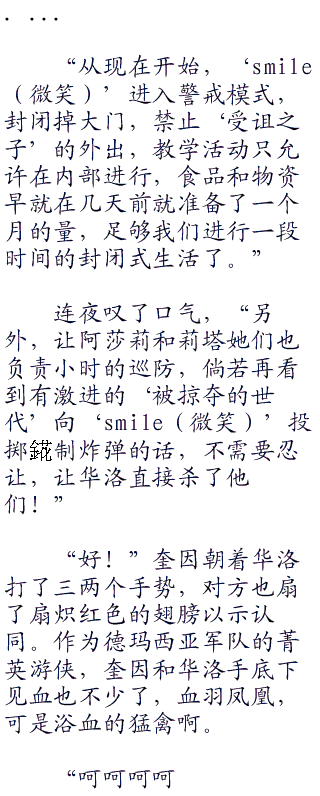 . ...
“从现在开始，‘smile
（微笑）’进入警戒模式，
封闭掉大门，禁止‘受诅之
子’的外出，教学活动只允
许在内部进行，食品和物资
早就在几天前就准备了一个
月的量，足够我们进行一段
时间的封闭式生活了。”
连夜叹了口气，“另
外，让阿莎莉和莉塔她们也
负责小时的巡防，倘若再看
到有激进的‘被掠夺的世
代’向‘smile（微笑）’投
掷制炸弹的话，不需要忍
让，让华洛直接杀了他
们！”
“好！”奎因朝着华洛
打了三两个手势，对方也扇
了扇炽红色的翅膀以示认
同。作为德玛西亚军队的菁
英游侠，奎因和华洛手底下
见血也不少了，血羽凤凰，
可是浴血的猛禽啊。
“呵呵呵呵